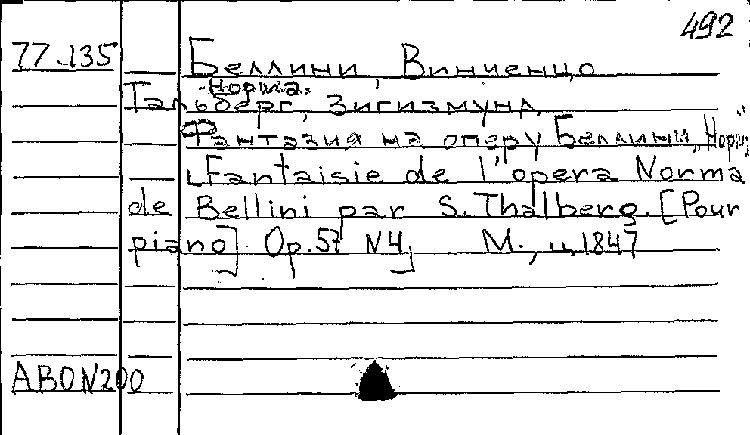 492
77.135 Беллини, Винченцо
Норма.
Тальберг, Зигизмунд
Фантазия на оперу Беллини „Норма"
Fantaisie de l'opera Norma
de Bellini par S. Thalberg. [Pour
piano]. Op. 57 N4 М., ц. 1847
ABON200